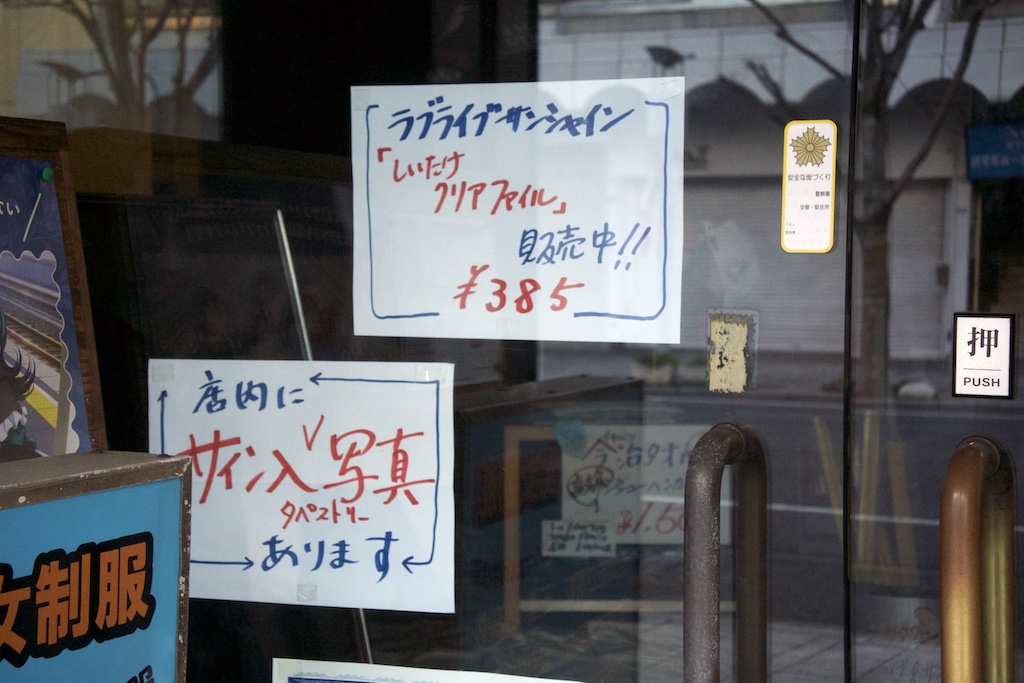 ラブライブサンシャイン
「しいたけ
クリアファイル」
販売中!!
¥385
店内に
サイン入写真
タペストリー
あります
安全な街づくり
警察署
交番・駐在所
押
PUSH
女制服
今治タオル